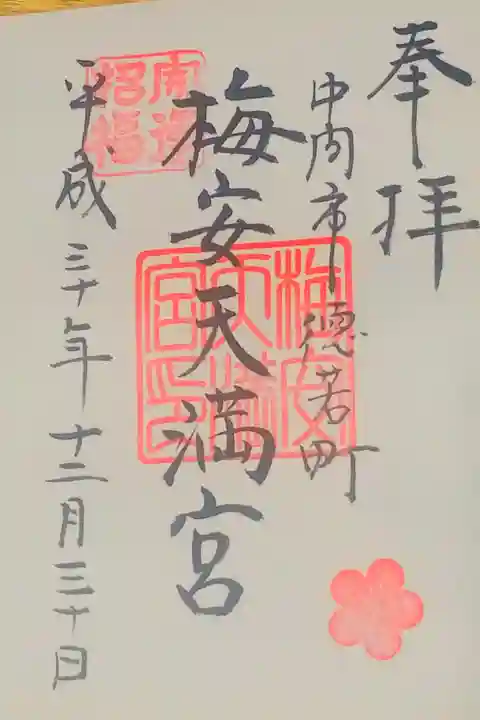 奉拝
中間市徳若町
梅安天満宮
平成三十年十二月三十日
開運
招福
梅安
天満
宮印